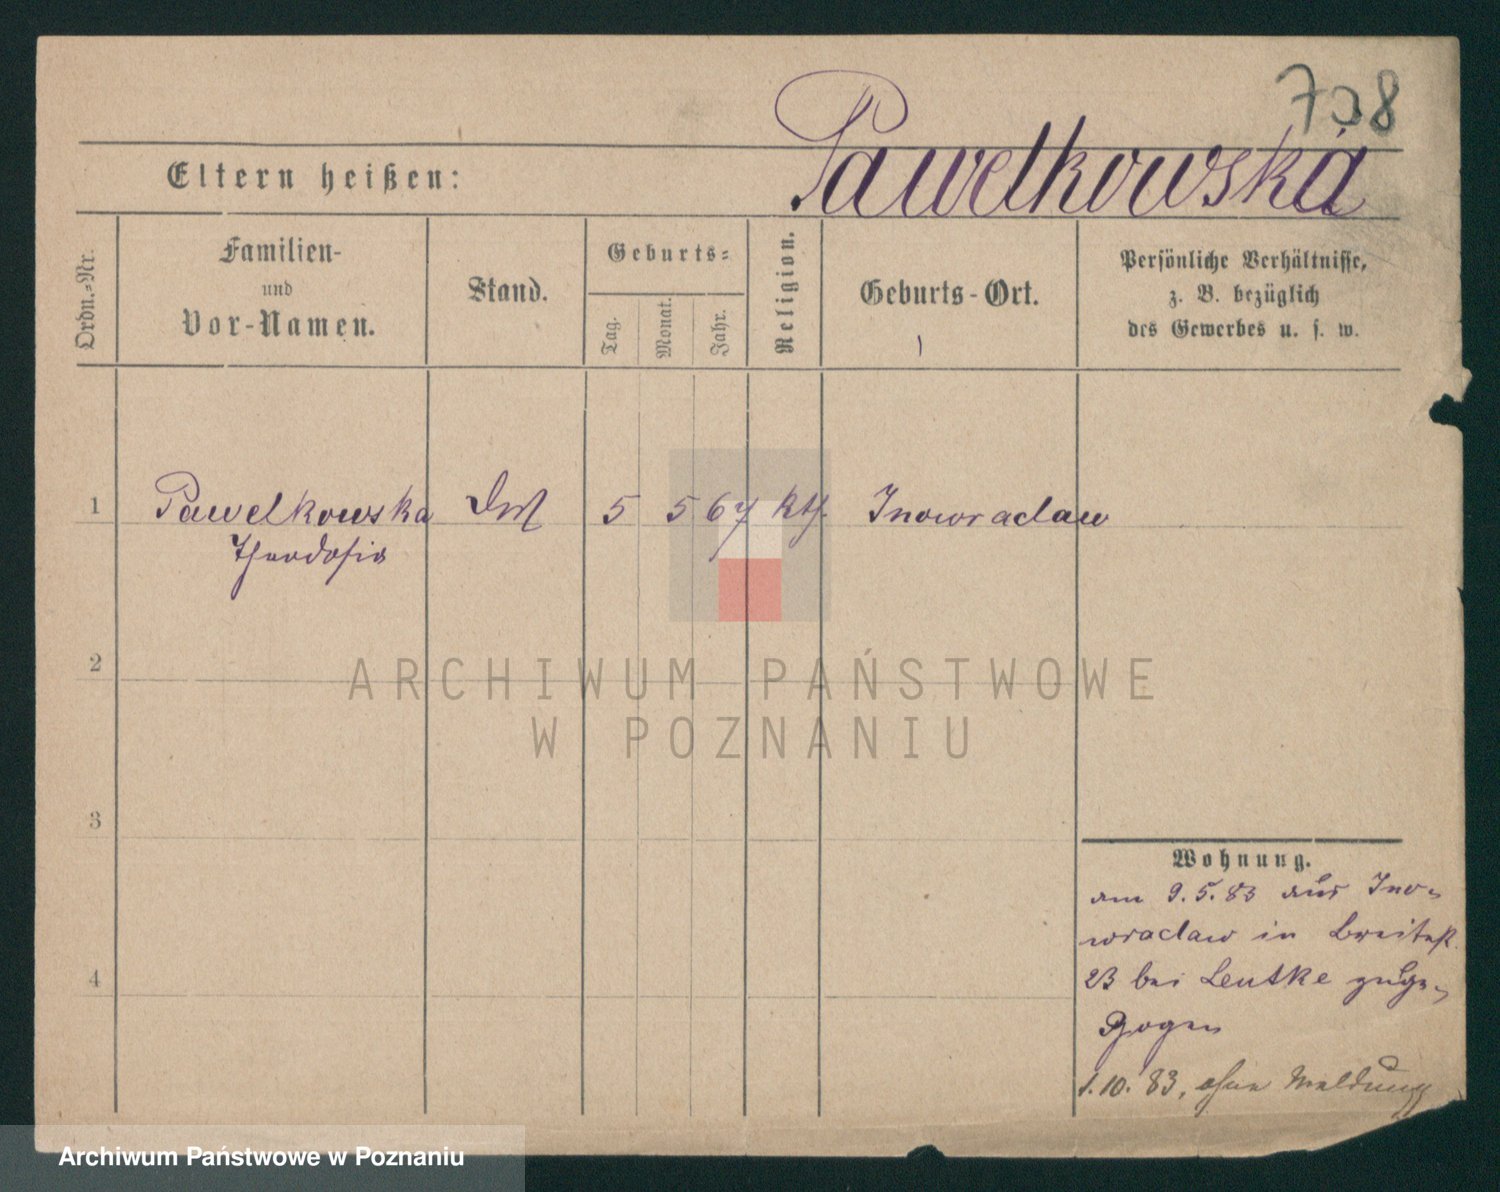 708
Pawelkowska
Eltern heißen:
Ordn.-Nr.
Familien-
und
Vor-Namen.
Stand.
Geburts-
Tag.
Monat.
Jahr.
Religion.
Geburts-Ort.
Persönliche Verhältnisse,
z. B. bezüglich
des Gewerbes u. s. w.
1 Pawelkowska 5 5 67 kth. Inowraclaw
Theodosia
2
ARCHIWUM PAŃSTWOWE
W POZNANIU
3
4
Wohnung.
am 9.5.83 aus Ino-
wraclaw in Breitestr.
23 bei Leutke zuge-
zogen
1.10.83, ohne Meldung
Archiwum Państwowe w Poznaniu